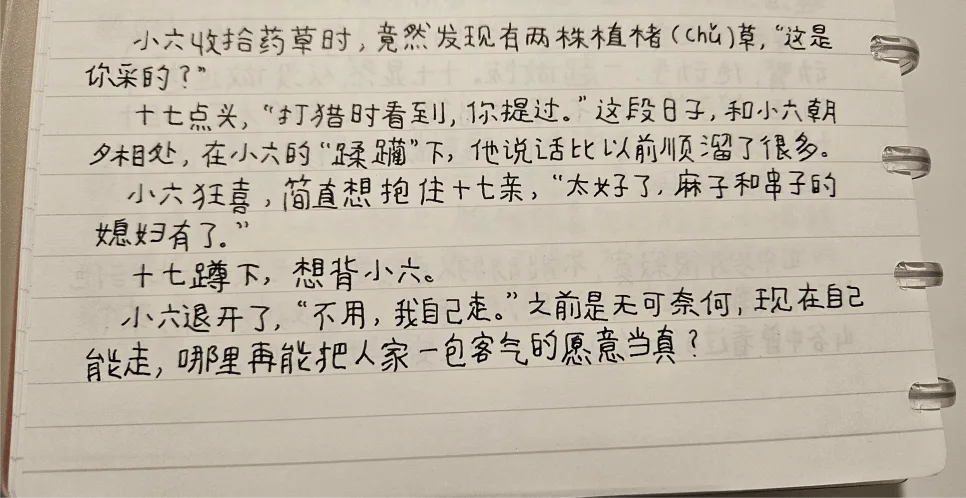 小六收拾药草时，竟然发现有两株植楮(chǔ)草，“这是
你采的？”
十七点头，“打猎时看到，你提过。”这段日子，和小六朝
夕相处，在小六的“蹂躏”下，他说话比以前顺溜了很多。
小六狂喜，简直想抱住十七亲，“太好了，麻子和串子的
媳妇有了。”
十七蹲下，想背小六。
小六退开了，“不用，我自己走。”之前是无可奈何，现在自己
能走，哪里再能把人家一包客气的愿意当真？